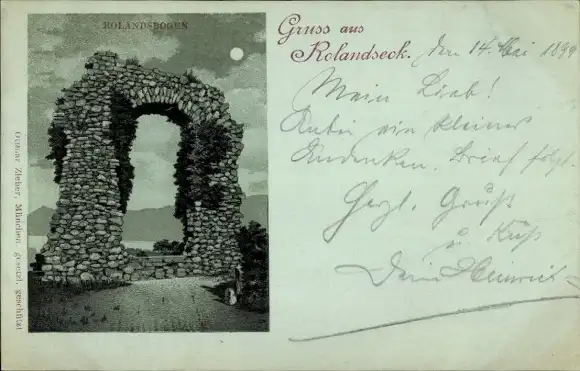 ROLANDSBOGEN
Gruss aus
Rolandseck.
den 14. Mai 1899
Mein Lieb!
ein kleines
Andenken. Brief folgt.
Herzl. Gruß
u. Kuß
Dein Heinrich
Ottmar Zieher, München, gesetzl. geschützt